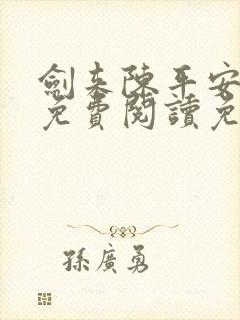 劍来陳平安
免費閱讀免
孫廣勇